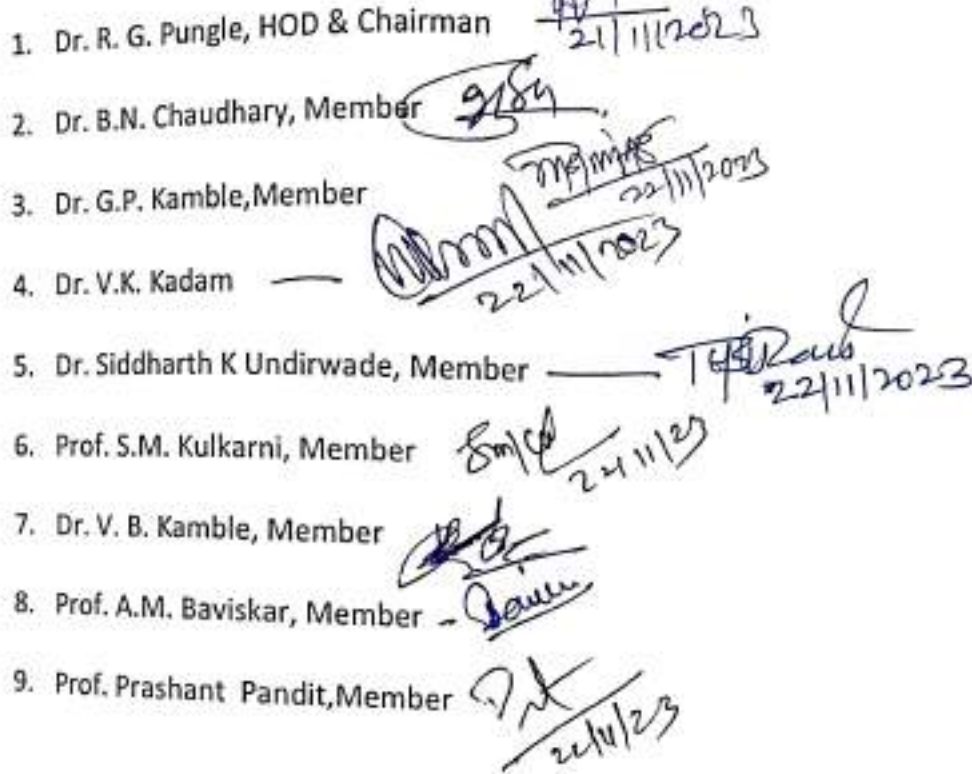 1. Dr. R. G. Pungle, HOD & Chairman 21/11/2023
2. Dr. B.N. Chaudhary, Member
3. Dr. G.P. Kamble,Member 22/11/2023
4. Dr. V.K. Kadam — 22/11/2023
5. Dr. Siddharth K Undirwade, Member — 22/11/2023
6. Prof. S.M. Kulkarni, Member 22/11/23
7. Dr. V. B. Kamble, Member
8. Prof. A.M. Baviskar, Member -
9. Prof. Prashant Pandit,Member 22/11/23